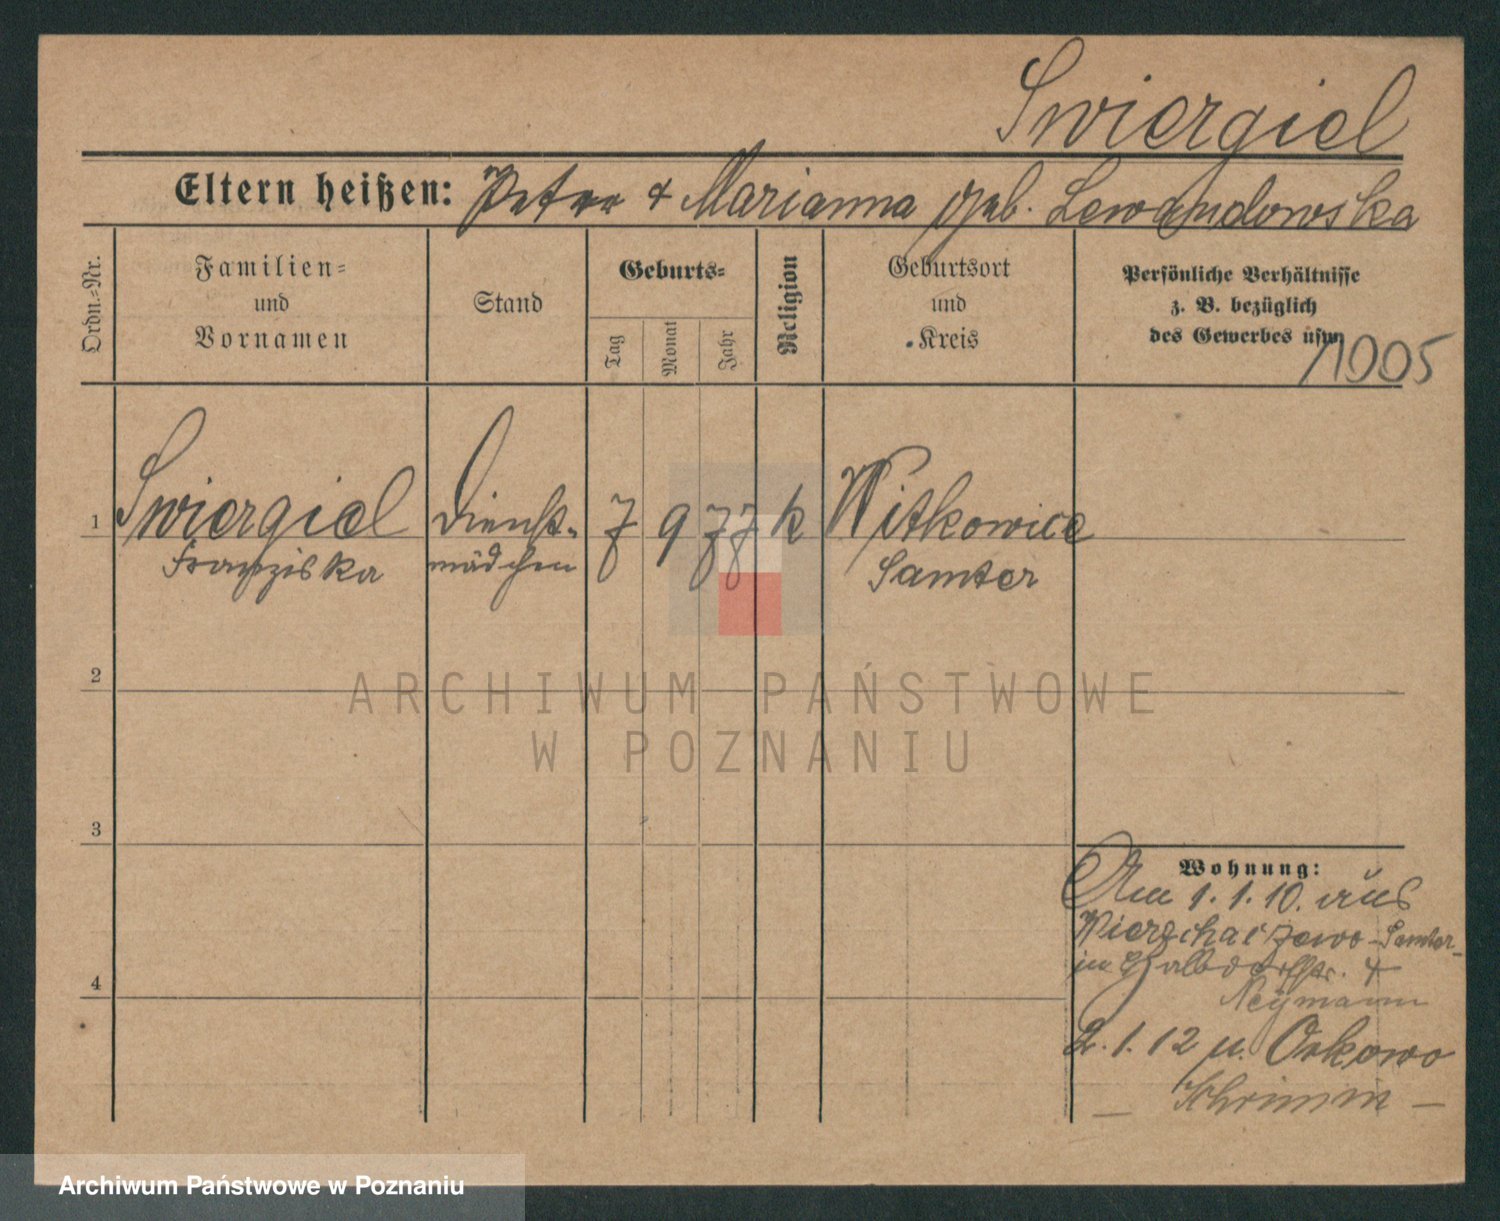 Swiergiel
Eltern heißen: Peter & Marianna geb. Lewandowska
Ordn.=Nr.
Familien=
und
Vornamen
Stand
Geburts=
Tag
Monat
Jahr
Religion
Geburtsort
und
Kreis
Persönliche Verhältnisse
z. B. bezüglich
des Gewerbes usw.
1905
1 Swiergiel Dienst- 7 9 77 k Witkowice
Franziska mädchen Samter
2
ARCHIWUM PAŃSTWOWE
W POZNANIU
3
Wohnung:
Am 1.1.10. aus
Wierzchaczewo - Samter -
in Halbdorfstr. 4
Neymann
2.1.12 u. Orkowo
— Schrimm —
4
Archiwum Państwowe w Poznaniu